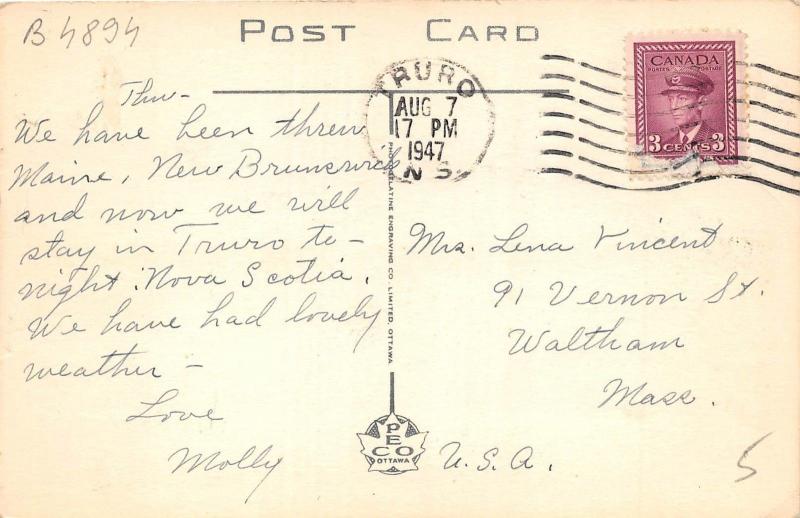 B 4894
POST CARD
TRURO
AUG 7
17 PM
1947
N S
CANADA
POSTES POSTAGE
3 CENTS 3
Thur-
We have been threw
Maine, New Brunswick
and now we will
stay in Truro to-
night. Nova Scotia.
We have had lovely
weather -
Love
Molly
PHOTOGELATINE ENGRAVING CO. LIMITED, OTTAWA
PECO
OTTAWA
Mrs. Lena Vincent
91 Vernon St.
Waltham
Mass.
U.S.A.
5